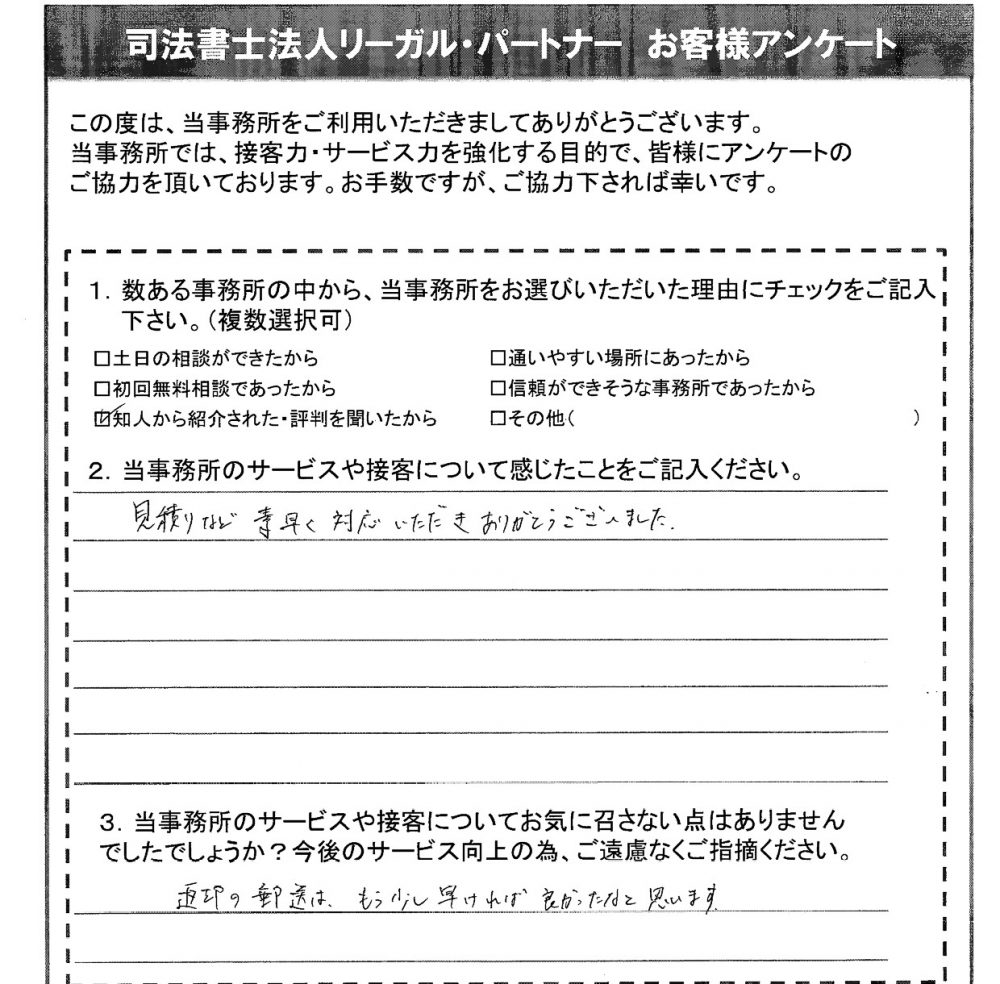 司法書士法人リーガル・パートナー お客様アンケート
この度は、当事務所をご利用いただきましてありがとうございます。
当事務所では、接客力・サービス力を強化する目的で、皆様にアンケートの
ご協力を頂いております。お手数ですが、ご協力下されば幸いです。
1. 数ある事務所の中から、当事務所をお選びいただいた理由にチェックをご記入
下さい。(複数選択可)
□土日の相談ができたから □通いやすい場所にあったから
□初回無料相談であったから □信頼ができそうな事務所であったから
☑知人から紹介された・評判を聞いたから □その他( )
2. 当事務所のサービスや接客について感じたことをご記入ください。
見積りなど 素早く 対応 いただき ありがとうございました.
3. 当事務所のサービスや接客についてお気に召さない点はありません
でしたでしょうか?今後のサービス向上の為、ご遠慮なくご指摘ください。
の 郵送は、もう少し 早ければ 良かったなと 思います